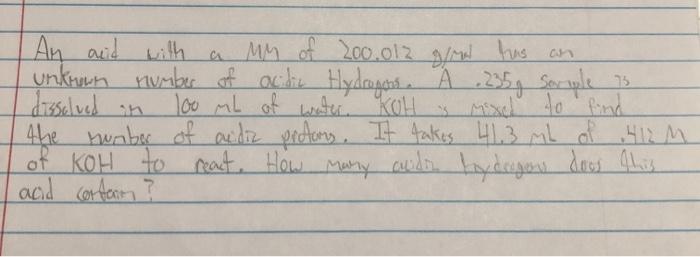 An acid with a MM of 200.012 g/mol has an
unknown number of acidic Hydrogens. A .235g sample is
dissolved in 100 mL of water. KOH is mixed to find
the number of acidic protons. It takes 41.3 mL of .412 M
of KOH to react. How many acidic hydrogens does this
acid contain?